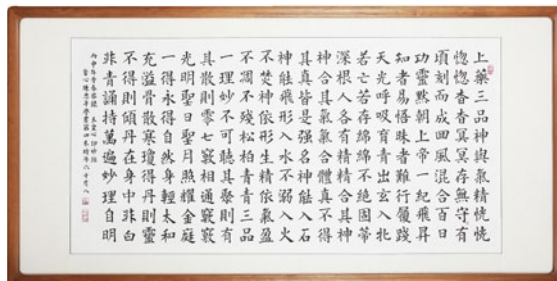 上藥三品神與氣精恍恍
惚惚杳杳冥冥存無守有
頃刻而成囬風混合百日
功靈默朝上帝一紀飛昇
知者易悟昧者難行履踐
天光呼吸育青出玄入牝
若亡若存綿綿不絕固蒂
深根人各有精精合其神
神合其氣氣合體真不得
其真皆是强名神能入石
神能飛形入水不溺入火
不焚神依形生精依氣盈
不凋不殘松柏青青三品
一理妙不可聽其聚則有
其散則零七竅相通竅竅
光明聖日聖月照耀金庭
一得永得自然身輕太和
充溢骨散寒瓊得丹則靈
不得則傾丹在身中非白
非青誦持萬遍妙理自明
丙申年 恭錄 玉皇心印妙經